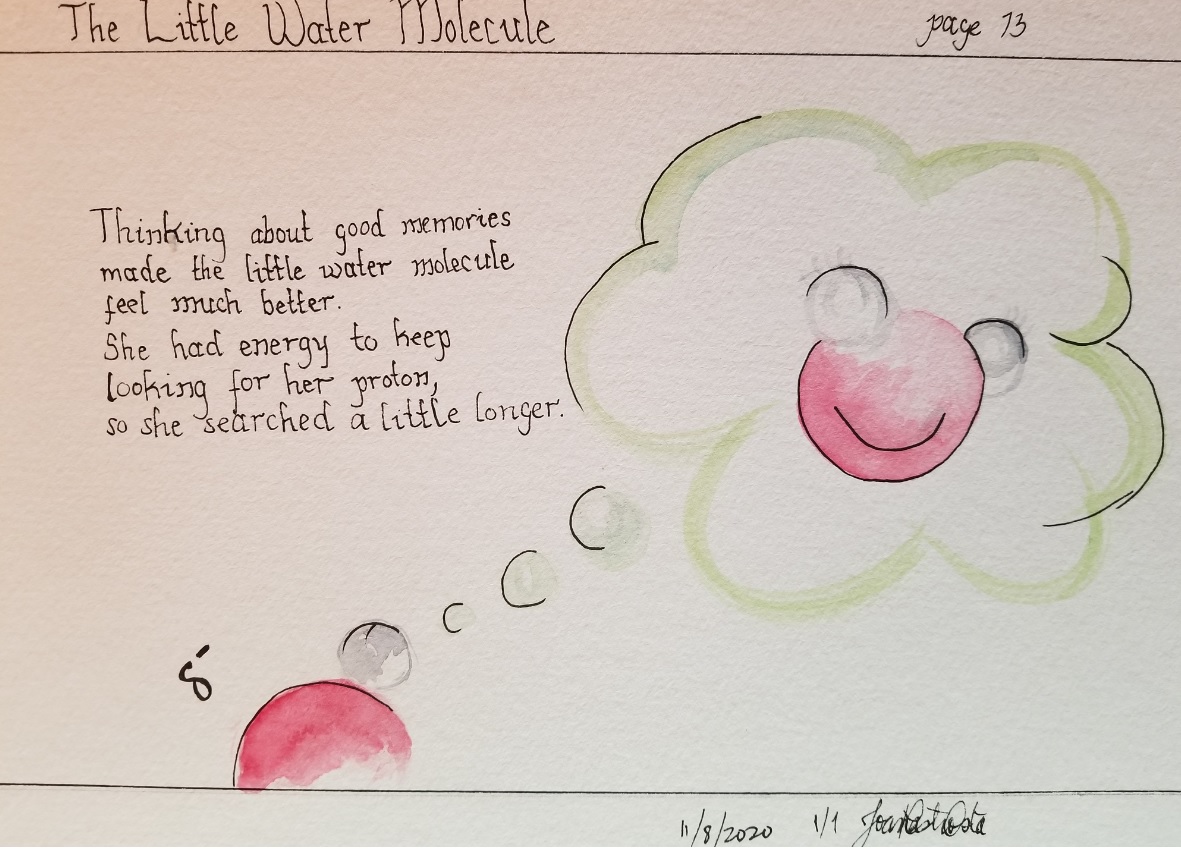 The Little Water Molecule
page 13
Thinking about good memories
made the little water molecule
feel much better.
She had energy to keep
looking for her proton,
so she searched a little longer.
δ-
11/8/2020 1/1